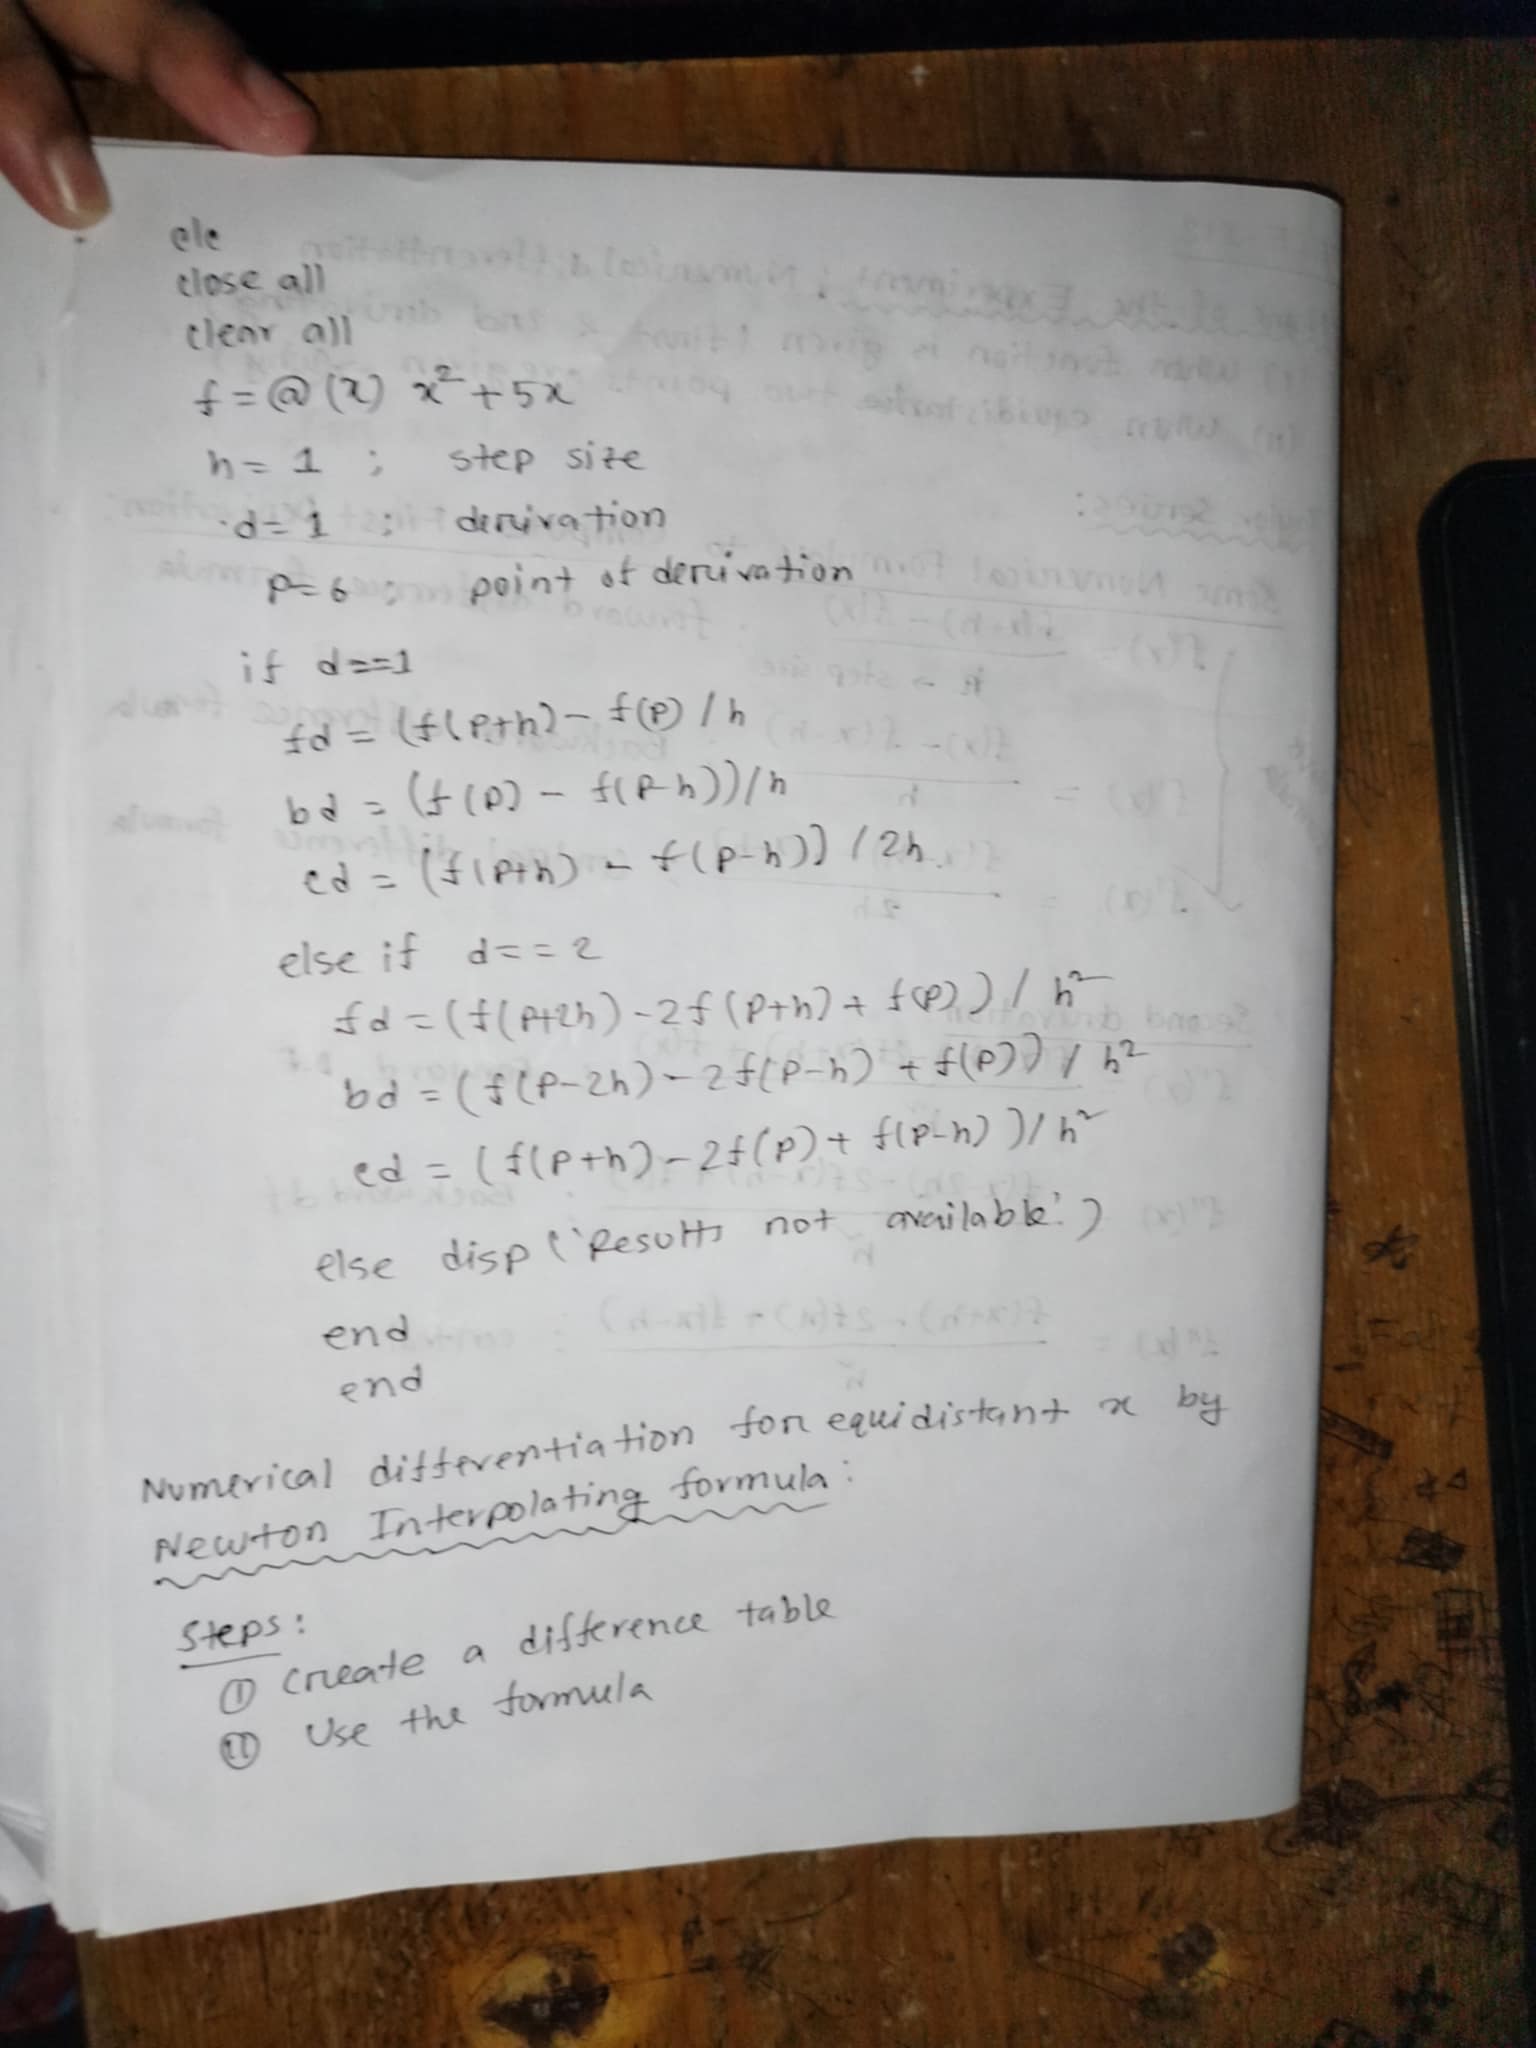 clc
close all
clear all
f = @ (x) x² + 5x
h = 1 ; step size
d = 1 ; derivation
p = 6 ; point of derivation
if d==1
fd = (f(p+h) - f(p) / h
bd = (f(p) - f(p-h))/h
cd = (f(p+h) - f(p-h)) / 2h.
else if d == 2
fd = (f(p+2h) - 2f(p+h) + f(p)) / h²
bd = (f(p-2h) - 2f(p-h) + f(p)) / h²
cd = (f(p+h) - 2f(p) + f(p-h)) / h²
else disp ('Results not available')
end
end
Numerical differentiation for equidistant x by
Newton Interpolating formula :
Steps :
(i) Create a difference table
(ii) Use the formula